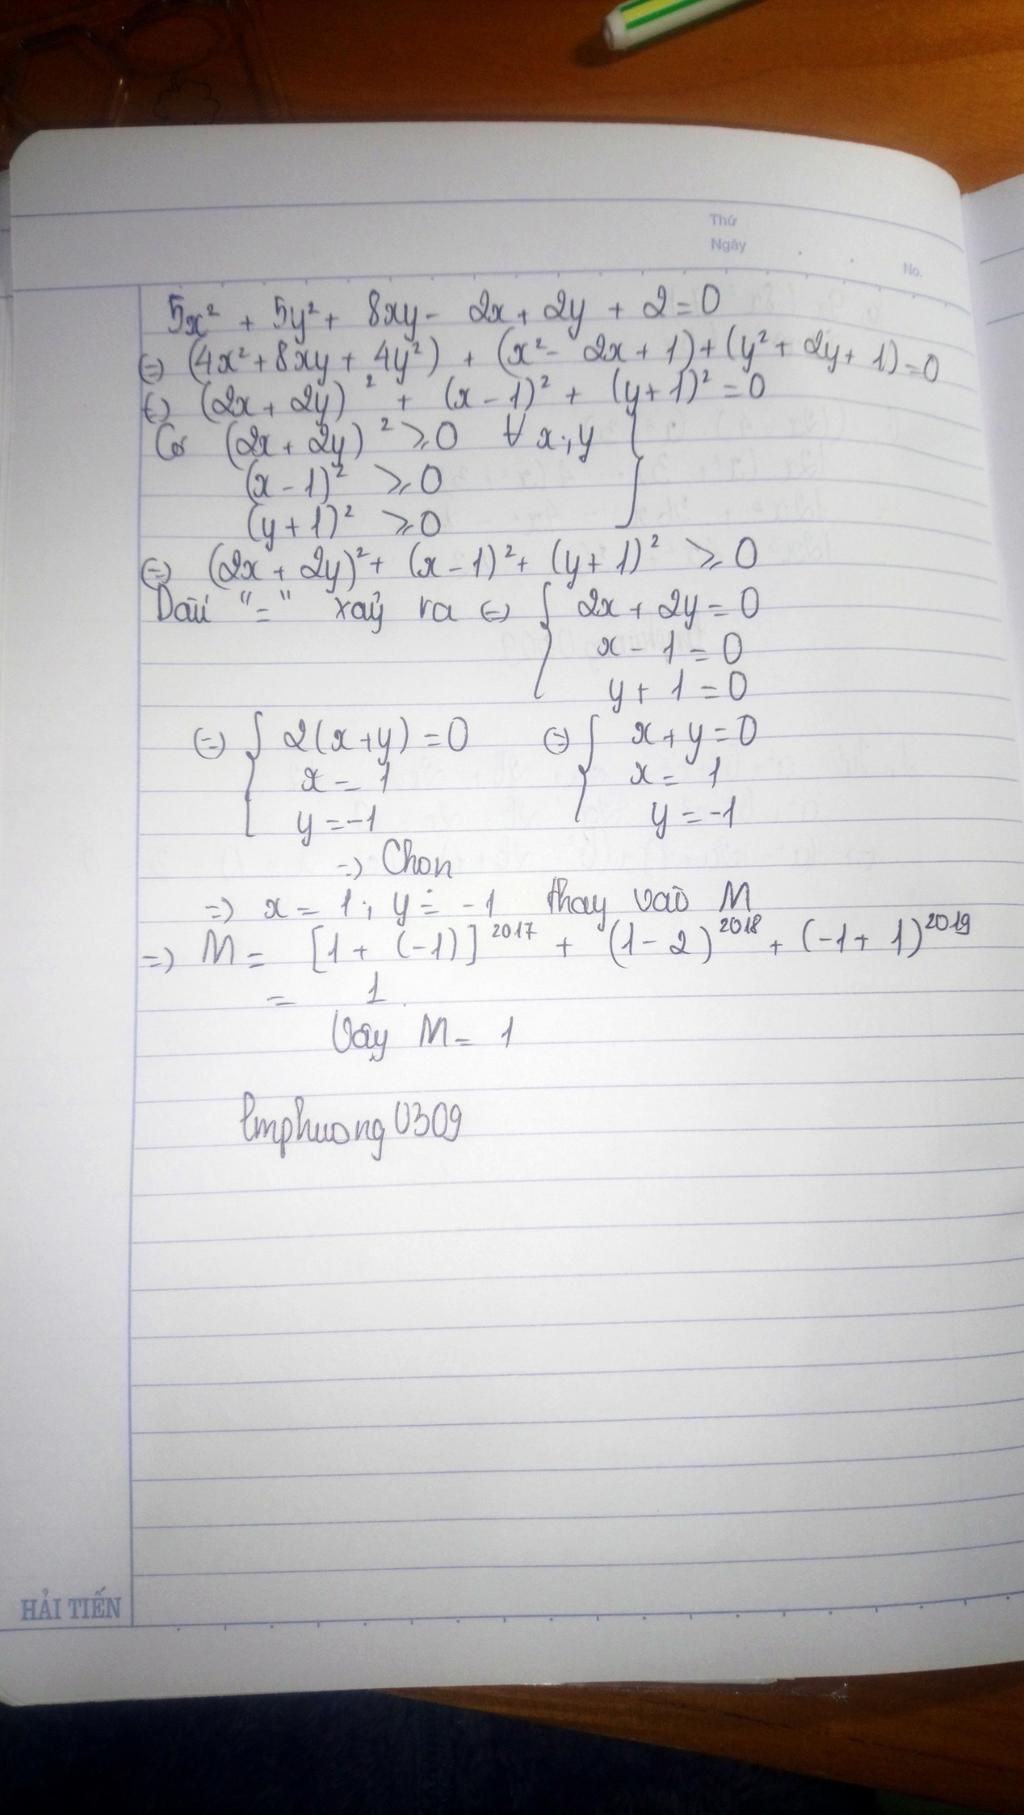 Thứ
Ngày
No.
5x² + 5y² + 8xy - 2x + 2y + 2 = 0
⇔ (4x² + 8xy + 4y²) + (x² - 2x + 1) + (y² + 2y + 1) = 0
⇔ (2x + 2y)² + (x - 1)² + (y + 1)² = 0
Có (2x + 2y)² ⩾ 0 ∀ x; y
(x - 1)² ⩾ 0
(y + 1)² ⩾ 0
⇔ (2x + 2y)² + (x - 1)² + (y + 1)² ⩾ 0
Dấu "=" xảy ra ⇔ { 2x + 2y = 0
x - 1 = 0
y + 1 = 0
⇔ { 2(x + y) = 0 ⇔ { x + y = 0
x = 1 x = 1
y = -1 y = -1
⇒ Chọn
⇒ x = 1; y = -1 thay vào M
⇒ M = [1 + (-1)]²⁰¹⁷ + (1 - 2)²⁰¹⁸ + (-1 + 1)²⁰¹⁹
= 1
Vậy M = 1
lmphuong0309
HẢI TIẾN